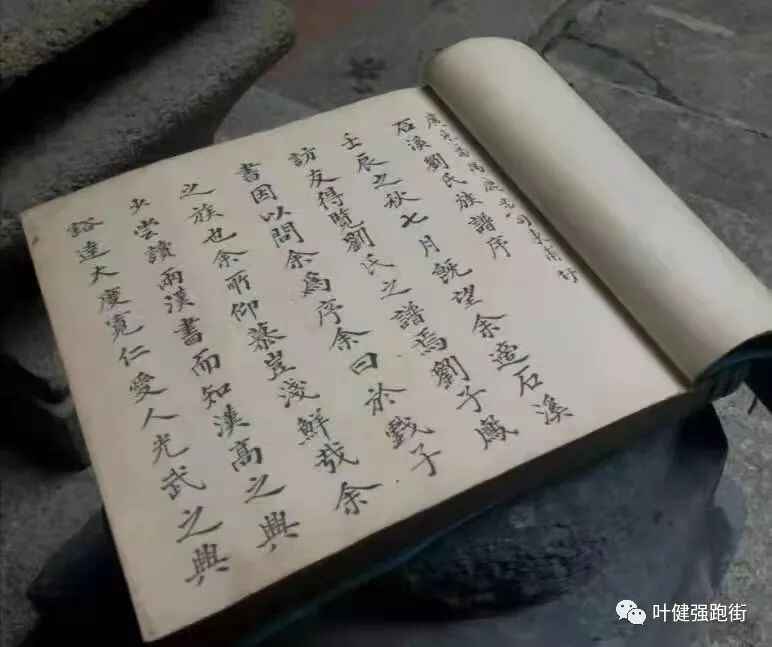 石溪劉氏族譜序
壬辰之秋七月既望余適石溪
訪友得覽劉氏之譜焉劉子鳳
書因以問余爲序余曰於戲子
之族也余所仰慕豈淺鮮哉余
少嘗讀兩漢書而知漢高之興
豁達大度寬仁愛人光武之興
叶健强跑街